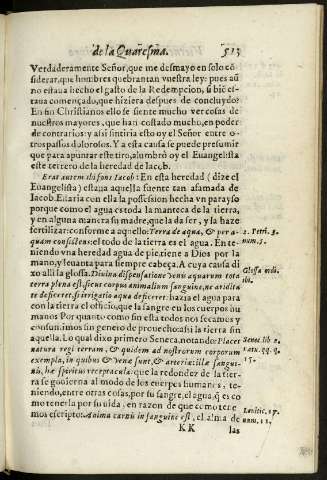 de la Quaresma. 513
Verdaderamente Señor, que me desmayo en solo cõ
siderar, que hombres quebrantan vuestra ley: pues aũ
no estaua hecho el gasto de la Redempcion, si biẽ es-
taua començado, que hiziera despues de concluydo?
En fin Christianos ello se siente mucho ver cosas de
nuestros mayores, que han costado mucho, en poder
de contrarios: y assi sintiria esto oy el Señor entre o-
tros passos dolorosos. Y a esta causa se puede presumir
que para apuntar este tiro, alumbrò oy el Euangelista
este terrero de la heredad de Iacob.
Erat autem ibi fons Iacob: En esta heredad (dize el
Euangelista) estaua aquella fuente tan afamada de
Iacob. Estaria con ella la possession hecha vn parayso
porque como el agua es toda la manteca de la tierra,
y en alguna manera su madre, que la da ser, y la haze
fertilizar: conforme a aquello: Terra de aqua, & per a-
quam consistens: el todo de la tierra es el agua. En te-
niendo vna heredad agua de pie, tiene a Dios por la
mano, y leuanta para siempre cabeça. A cuya causa di
xo alli la glossa. Diuina dispensatione venis aquarum tota
terra plena est, sicut corpus animalium sanguine, ne aridita
te deficeret, si irrigatio aqua deficeret: hazia el agua para
con la tierra el oficio, que la sangre en los cuerpos hu
manos. Por quanto como sin esta todos son secaños y
consumimos sin genero de prouecho: assi la tierra sin
aquella. Lo qual dixo primero Seneca, notando: Placet
natura regi terram, & quidem ad nostrorum corporum
exempla, in quibus & venæ sunt, & arteriæ: illæ sangui-
nis, hæ spiritus receptacula: que la redondez de la tier-
ra se gouierna al modo de los cuerpos humanos, te-
niendo, entre otras cosas, por su sangre, el agua, q̃ es co
mo tenerla por su vida, en razon de que como tene
mos escripto: Anima carnis in sanguine est, el alma de
KK las
2. Petri. 3.
num. 5.
Glossa
ibi.
Senec. lib.
natu. qq. q.
15.
Leuitic. 17.
num. 11.